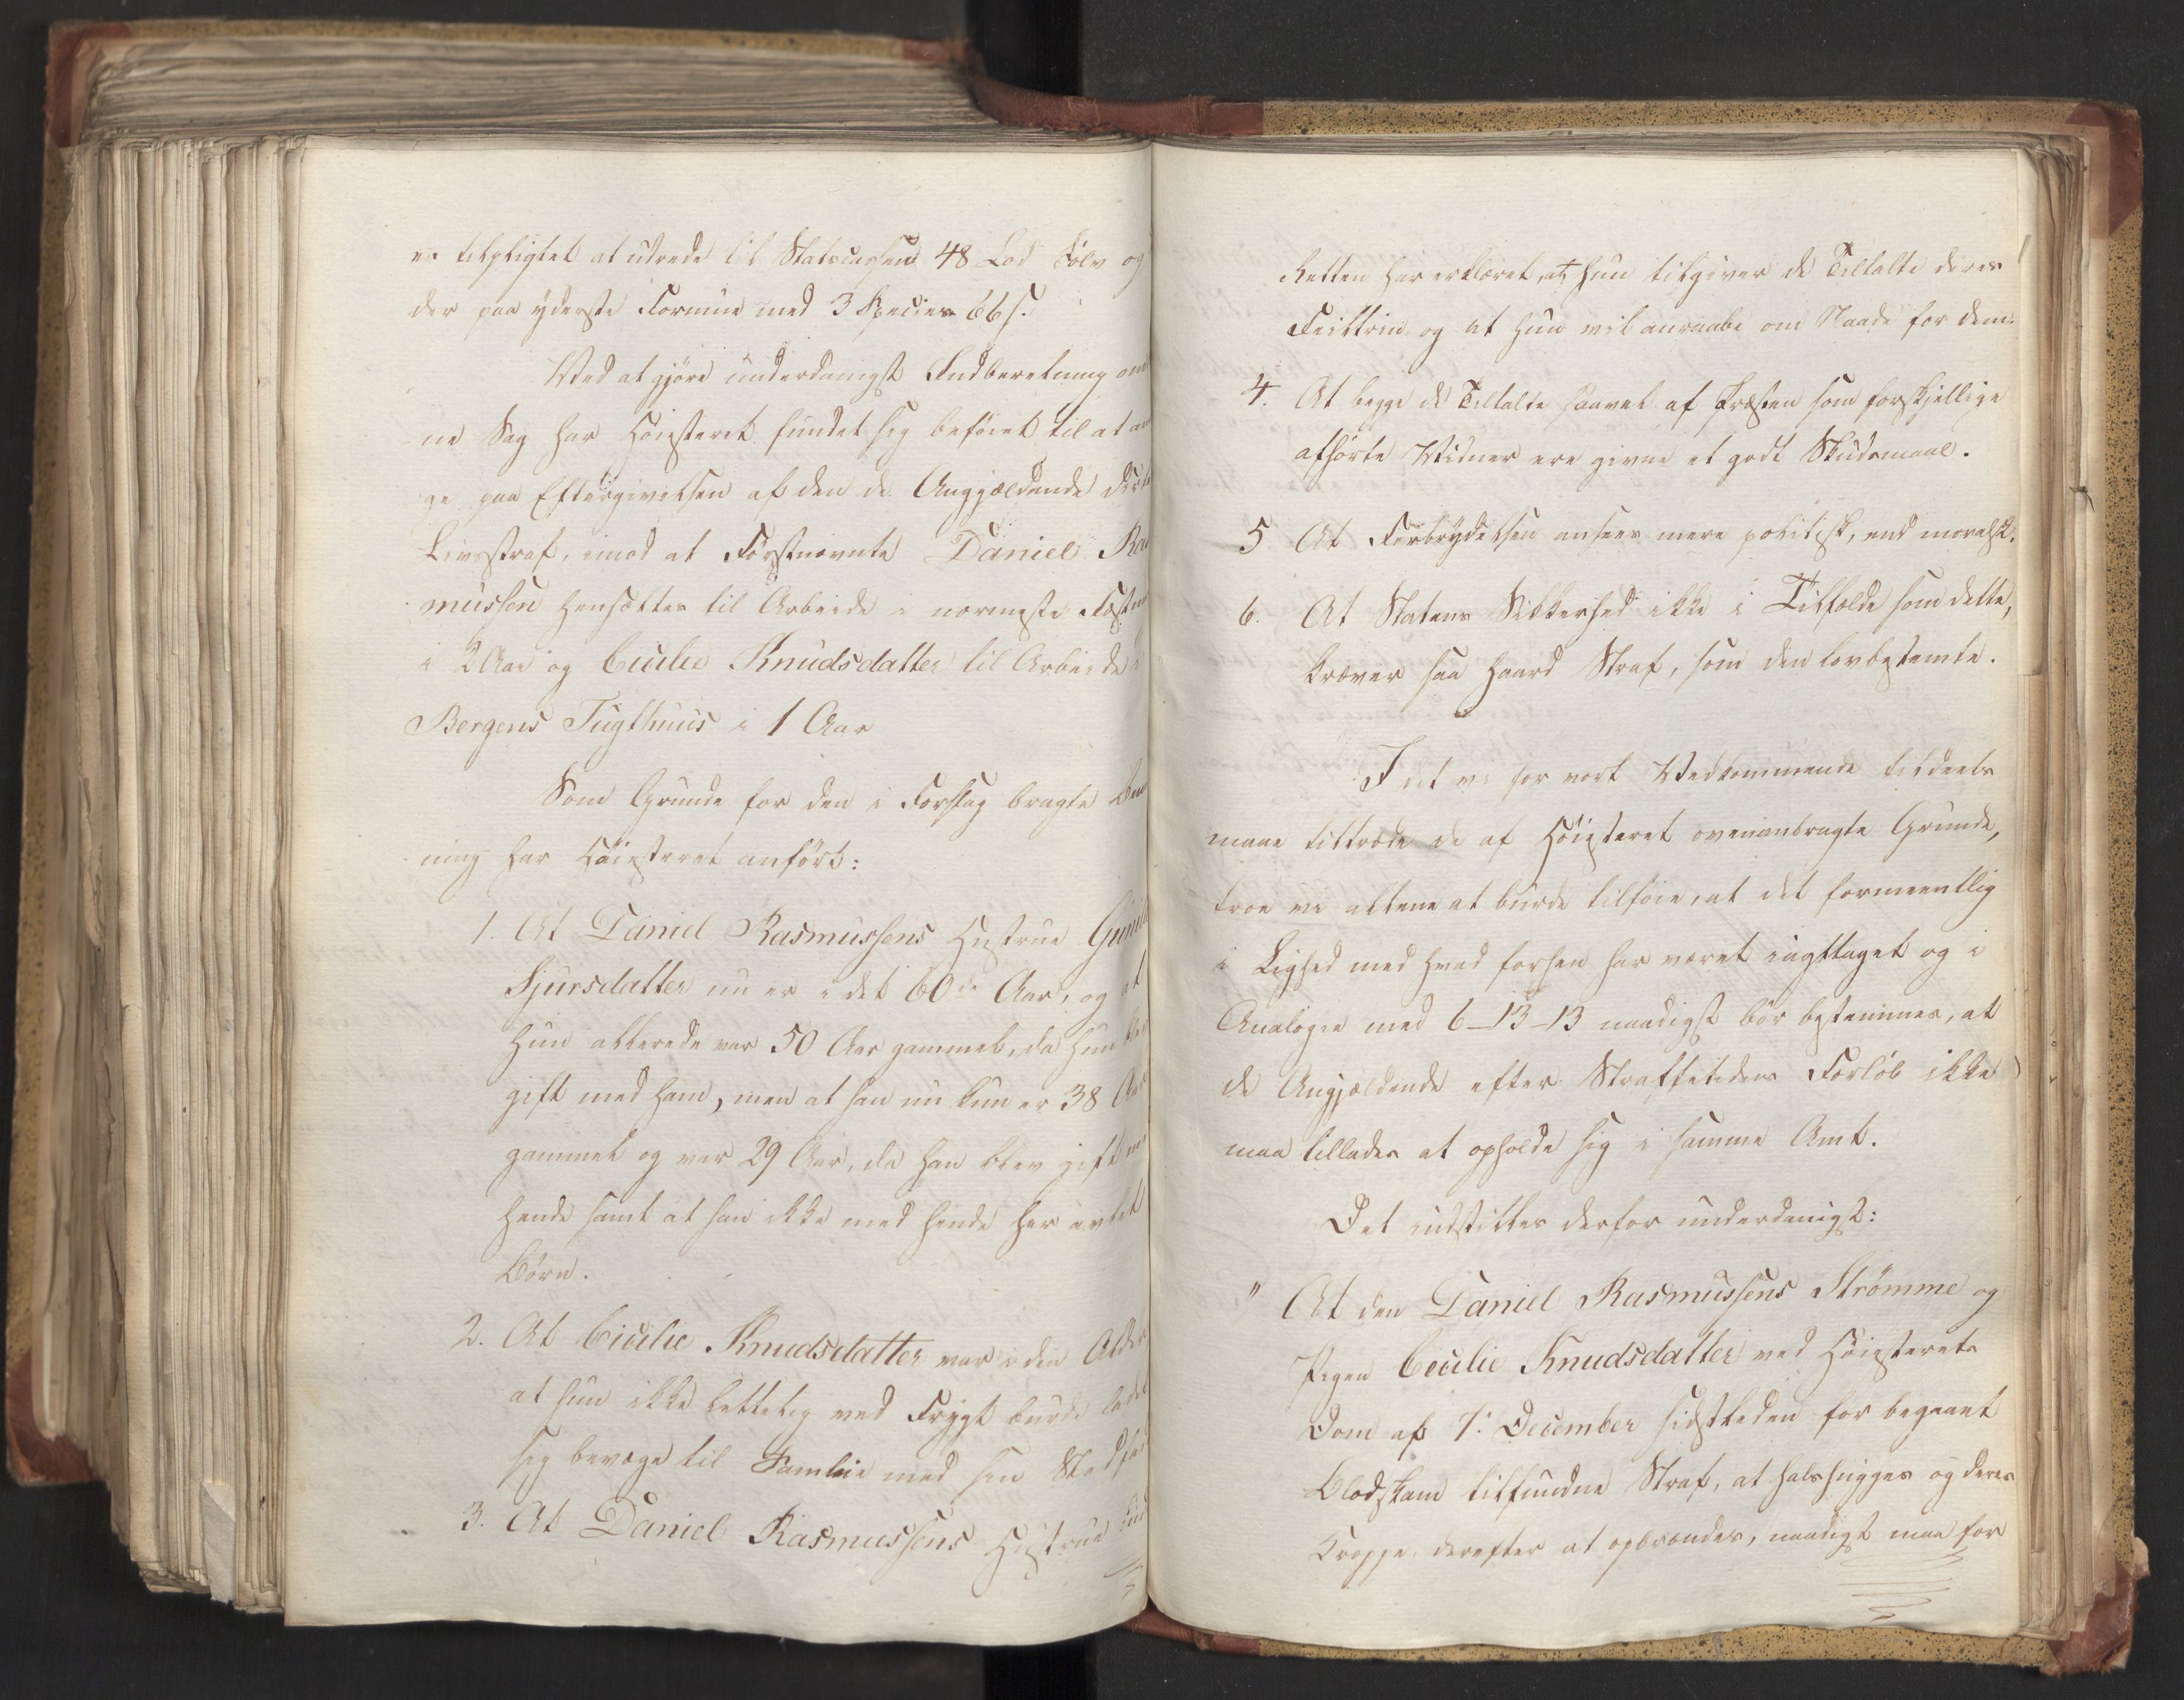 er tilpligtet at udrede til Statscassen 48 Lod Sølv og
der paa yderste Formue med 3 Species 66 s.
Ved at gjöre underdanigst Indberetning om
ne Sag har Höiesteret fundet sig beföiet til at an
ge paa Eftergivelsen af den de Angjældende
Livsstraf, imod at Förstnævnte Daniel Ras
mussen hensættes til Arbeide i nærmeste Fæstn
i 2 Aar og Cicilie Knudsdatter til Arbeide i
Bergens Tugthuus i 1 Aar
Som Grunde for den i Forslag bragte Ben
ning har Höiesteret anfört:
1. At Daniel Rasmussens Hustrue Gunild
Sjursdatter nu er i det 60de Aar, og at
hun allerede var 50 Aar gammel, da hun blev
gift med ham, men at han nu kun er 38 Aar
gammel og var 29 Aar, da han blev gift med
hende samt at han ikke med hende har avlet
Börn.
2. At Cicilie Knudsdatter var i den Alder
at hun ikke lettelig ved Frygt burde ladet
sig bevæge til Samleie med sin Stedfad
3. At Daniel Rasmussens Hustrue ind
Retten har erklæret, at hun tilgiver de Tiltalte deres
Feiltrin og at hun vil anraabe om Naade for dem.
4. At begge de Tiltalte saavel af Præsten som forskjellige
afhörte Vidner ere givne et godt Skudsmaal.
5 At Forbrydelsen ansees mere politisk, end moralsk.
6. At Statens Sikkerhed ikke i Tilfælde som dette,
kræver saa haard Straf, som den lovbestemte.
I det vi for vort Vedkommende tildeels
maae tiltræde de af Höiesteret ovenanbragte Grunde,
troe vi allene at burde tilföie, at det formeentlig
i Lighed med hvad forhen har været iagttaget og i
Analogie med 6-13-13 naadigst bör bestemmes, at
de Angjældende efter Straffetidens Forlöb ikke
maa tillades at opholde sig i samme Amt.
Det indstilles derfor underdanigst:
" At den Daniel Rasmussens Strömme og
Pigen Cicilie Knudsdatter ved Höiesterets
Dom af 7. December sidstleden for begaaet
Blodskam tilfundne Straf, at halshugges og deres
Kroppe derefter at opbrændes, naadigst maa for